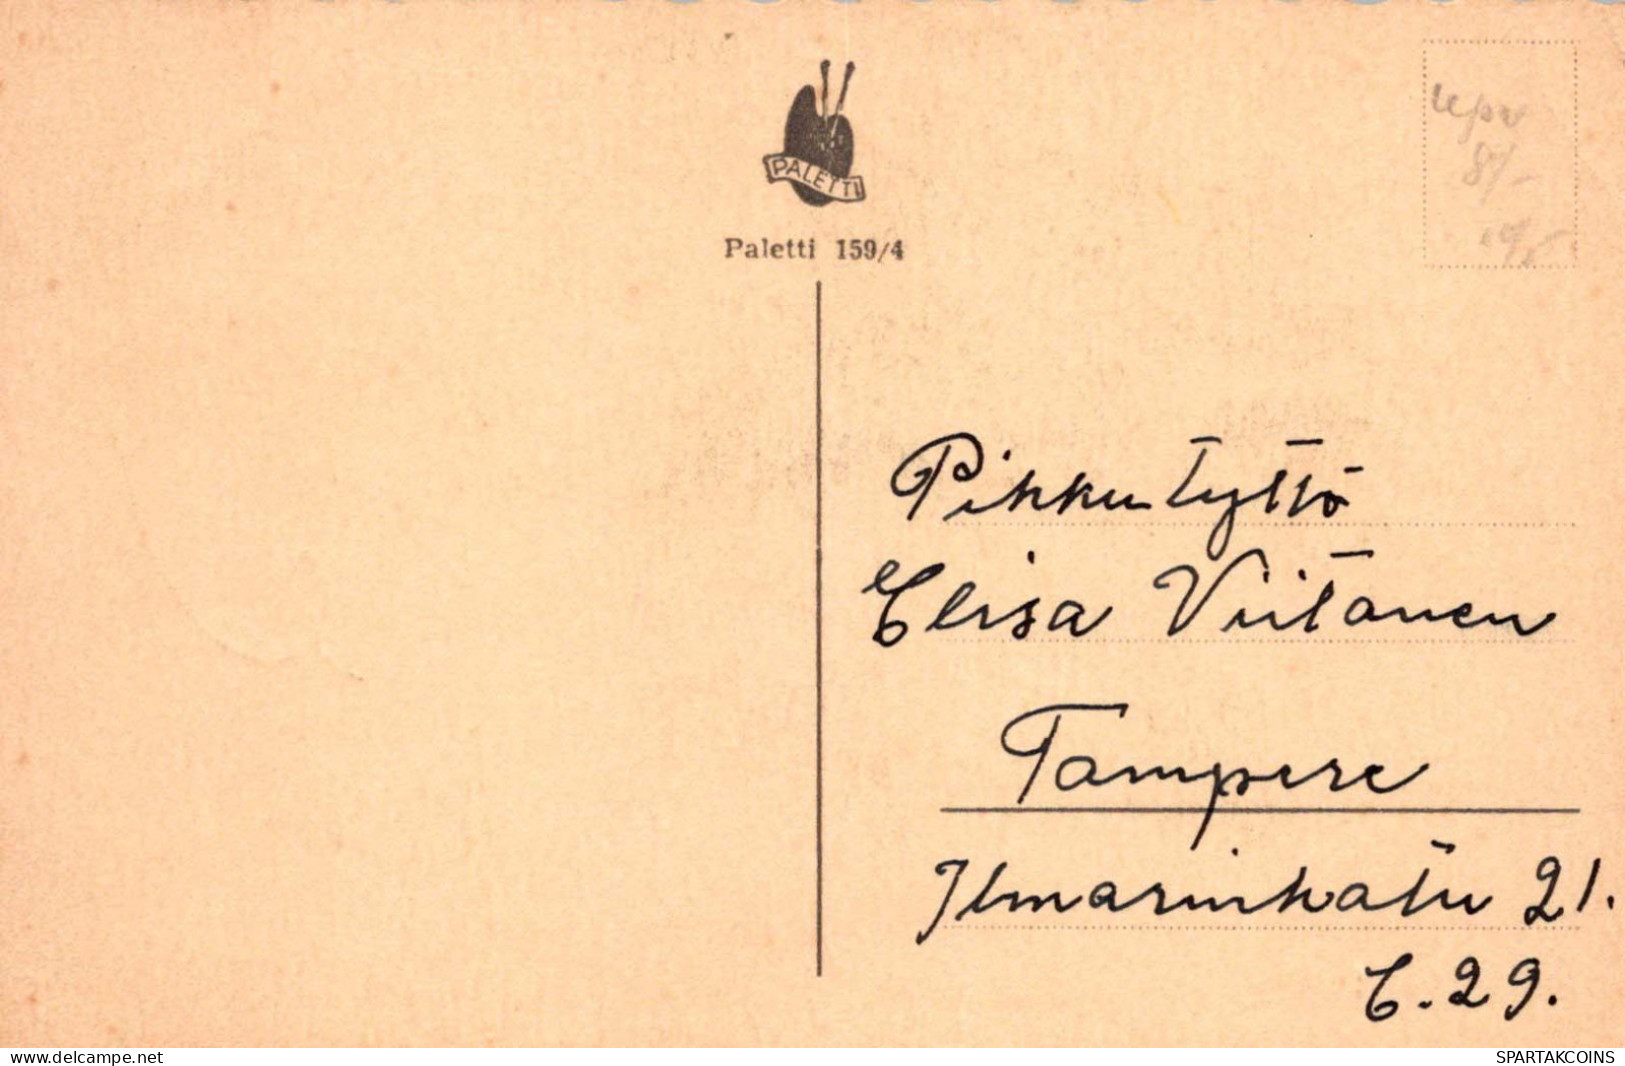 PALETTI
Paletti 159/4
8/-
Pikkutyttö
Elisa Viitanen
Tampere
Ilmarinkatu 21.
C. 29.
www.delcampe.net
SPARTAKCOINS